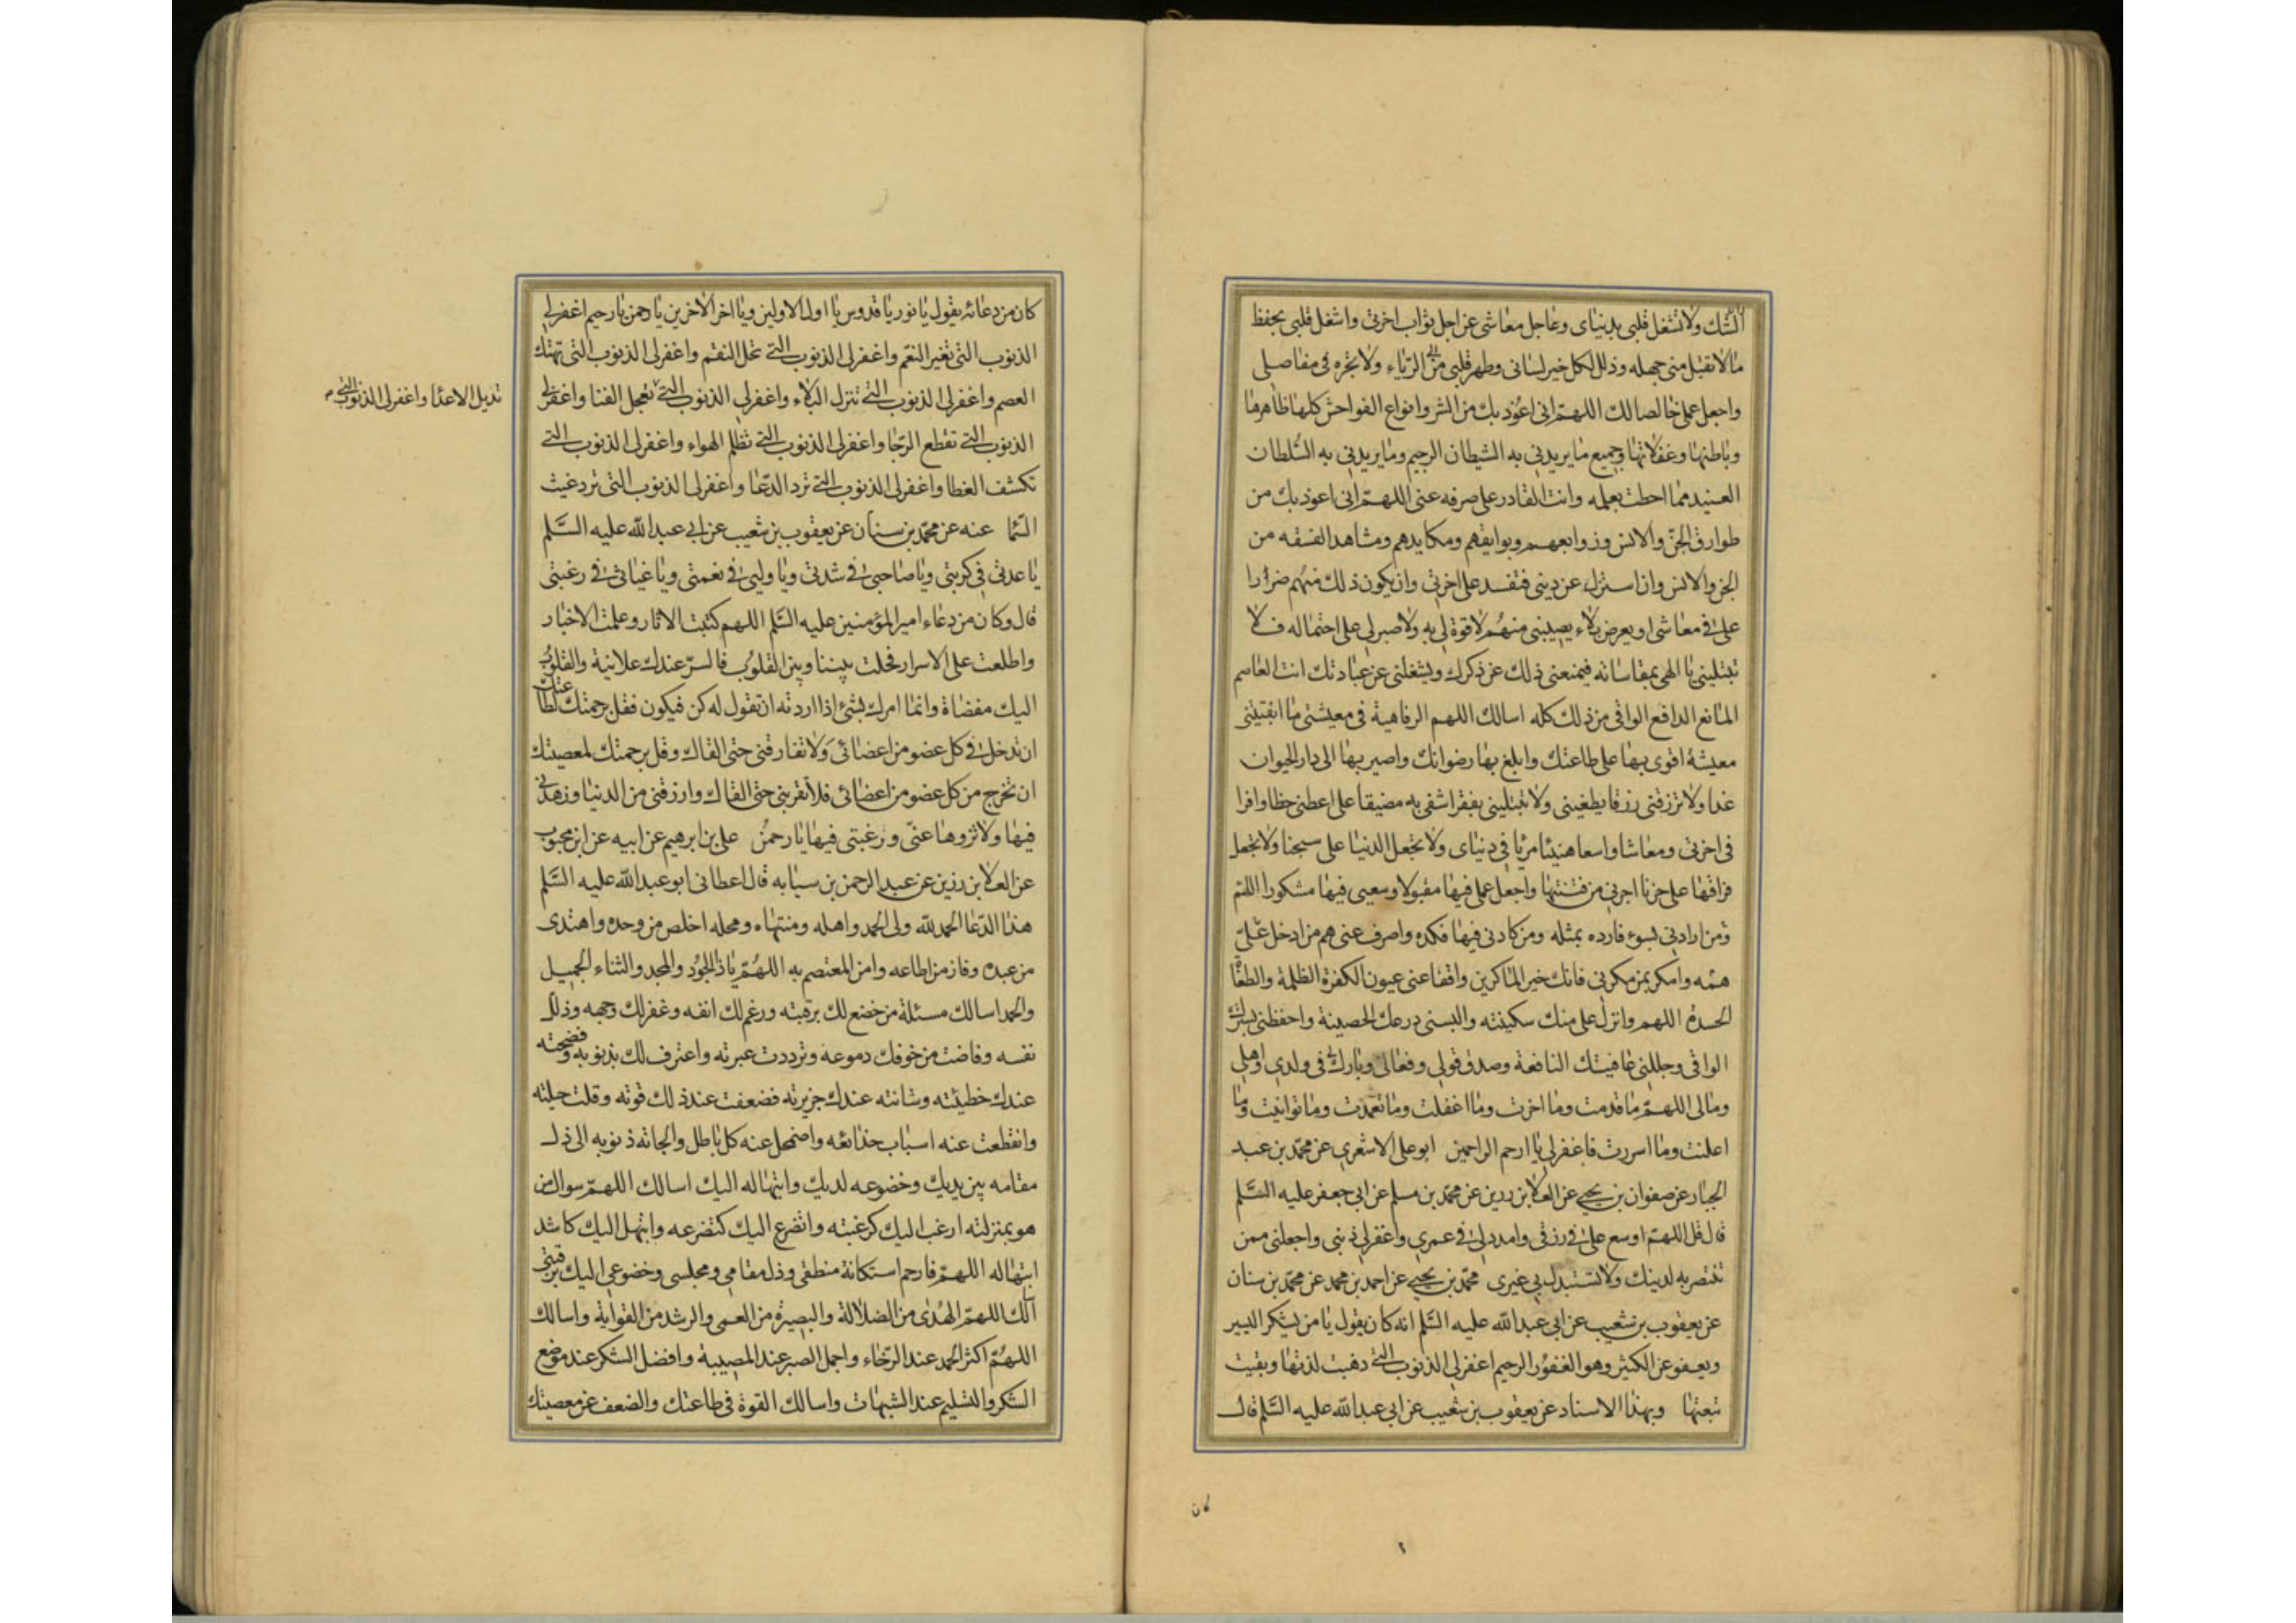 الشك ولا تشغل قلبي بدنياى وعاجل معاشى عن اجل ثواب اخرتى واشغل قلبى بحفظ
مالا تقبل منى جهله وذلل لكل خير لسانى وطهر قلبى من الرياء ولا تجره فى مفاصلى
واجعل عملى خالصا لك اللهم انى اعوذ بك من الشر وانواع الفواحش كلها ظاهرها
وباطنها وغفلاتها وجميع ما يريدنى به الشيطان الرجيم وما يريدنى به السلطان
العنيد مما احطت بعلمه وانت القادر على صرفه عنى اللهم انى اعوذ بك من
طوارق الجن والانس وزوابعهم وبوايقهم ومكايدهم ومشاهد الفسقه من
الجن والانس وان استزل عن دينى فتفسد على اخرتى وان يكون ذلك منهم ضررا
على فى معاشى او يعرض بلاء يصيبنى منهم لا قوة لى به ولا صبر لى على احتماله فلا
تبتلينى يا الهى بمقاساته فيمنعنى ذلك عن ذكرك ويشغلنى عن عبادتك انت العاصم
المانع الدافع الواقى من ذلك كله اسالك اللهم الرفاهية فى معيشتى ما ابقيتنى
معيشة اقوى بها على طاعتك وابلغ بها رضوانك واصير بها الى دار الحيوان
غدا ولا ترزقنى رزقا يطغينى ولا تبتلينى بفقر اشقى به مضيقا على اعطنى حظا وافرا
فى اخرتى ومعاشا واسعا هنيئا مريا فى دنياى ولا تجعل الدنيا على سجنا ولا تجعل
فراقها على حزنا اجرنى من فتنتها واجعل عملى فيها مقبولا وسعيى فيها مشكورا اللهم
ومن ارادنى بسوء فارده بمثله ومن كادنى فيها فكده واصرف عنى هم من ادخل على
همه وامكر بمن مكر بى فانك خير الماكرين وافقا عنى عيون الكفرة الظلمة والطغا
الحسدة اللهم وانزل على منك سكينته والبسنى درعك الحصينة واحفظنى بسترك
الواقى وجللنى عافيتك النافعة وصدق قولى وفعالى وبارك لى فى ولدى واهلى
ومالى اللهم ما قدمت وما اخرت وما اغفلت وما تعمدت وما توانيت وما
اعلنت وما اسررت فاغفر لى يا ارحم الراحمين ابو على الاشعرى عن محمد بن عبد
الجبار عن صفوان بن يحيى عن العلا بن رزين عن محمد بن مسلم عن ابى جعفر عليه السلم
قال قل اللهم اوسع على فى رزقى وامدد لى فى عمرى واغفر لى ذنبى واجعلنى ممن
تنتصر به لدينك ولا تستبدل بى غيرى محمد بن يحيى عن احمد بن محمد عن محمد بن سنان
عن يعقوب بن شعيب عن ابى عبد الله عليه السلم انه كان يقول يا من يشكر اليسير
ويعفو عن الكثير وهو الغفور الرحيم اغفر لى الذنوب التى ذهبت لذتها وبقيت
تبعتها وبهذا الاسناد عن يعقوب بن شعيب عن ابى عبد الله عليه السلم قال
كان
كان من دعائه يقول يا نور يا قدوس يا اول الاولين ويا اخر الاخرين يا رحمن يا رحيم اغفر لى
الذنوب التى تغير النعم واغفر لى الذنوب التى تحل النقم واغفر لى الذنوب التى تهتك
العصم واغفر لى الذنوب التى تنزل البلاء واغفر لى الذنوب التى تعجل الفنا واغفر لى
تديل الاعدا واغفر لى الذنوب التى م
الذنوب التى تقطع الرجا واغفر لى الذنوب التى تظلم الهواء واغفر لى الذنوب التى
تكشف الغطا واغفر لى الذنوب التى ترد الدعا واغفر لى الذنوب التى ترد غيث
السما عنه عن محمد بن سنان عن يعقوب بن شعيب عن ابى عبد الله عليه السلم
يا عدتى فى كربتى ويا صاحبى فى شدتى ويا وليى فى نعمتى ويا غياثى فى رغبتى
قال وكان من دعاء امير المؤمنين عليه السلم اللهم كتبت الاثار وعلمت الاخبار
واطلعت على الاسرار فحلت بيننا وبين القلوب فالسر عندك علانية والقلوب
اليك مفضاة وانما امرك بشئ اذا اردته ان تقول له كن فيكون فقل برحمتك لطاعتك
ان تدخل فى كل عضو من اعضائى ولا تفارقنى حتى القاك وقل برحمتك لمعصيتك
ان تخرج من كل عضو من اعضائى فلا تقربنى حتى القاك وارزقنى من الدنيا وزهدنى
فيها ولا تزوها عنى ورغبتى فيها يا رحمن على بن ابرهيم عن ابيه عن ابن محبوب
عن العلا بن رزين عن عبد الرحمن بن سيابه قال اعطانى ابو عبد الله عليه السلم
هذا الدعا الحمد لله ولى الحمد واهله ومنتهاه ومحله اخلص من وحده واهتدى
من عبده وفاز من اطاعه وامن المعتصم به اللهم يا ذا الجود والمجد والثناء الجميل
والحمد اسالك مسئلة من خضع لك برقبته ورغم لك انفه وعفر لك وجهه وذلل
نفسه وفاضت من خوفك دموعه وترددت عبرته واعترف لك بذنوبه وفضحته
عندك خطيئته وشانته عندك جريرته فضعفت عند ذلك قوته وقلت حيلته
وانقطعت عنه اسباب خدائعه واضمحل عنه كل باطل والجاته ذنوبه الى ذل
مقامه بين يديك وخضوعه لديك وابتهاله اليك اسالك اللهم سوال من
هو بمنزلته ارغب اليك كرغبته واتضرع اليك كتضرعه وابتهل اليك كاشد
ابتهاله اللهم فارحم استكانة منطقى وذل مقامى ومجلسى وخضوعى اليك برقبتى
اسالك اللهم الهدى من الضلالة والبصيرة من العمى والرشد من الغواية واسالك
اللهم اكثر الحمد عند الرخاء واجمل الصبر عند المصيبة وافضل الشكر عند موضع
الشكر والتسليم عند الشبهات واسالك القوة فى طاعتك والضعف عن معصيتك